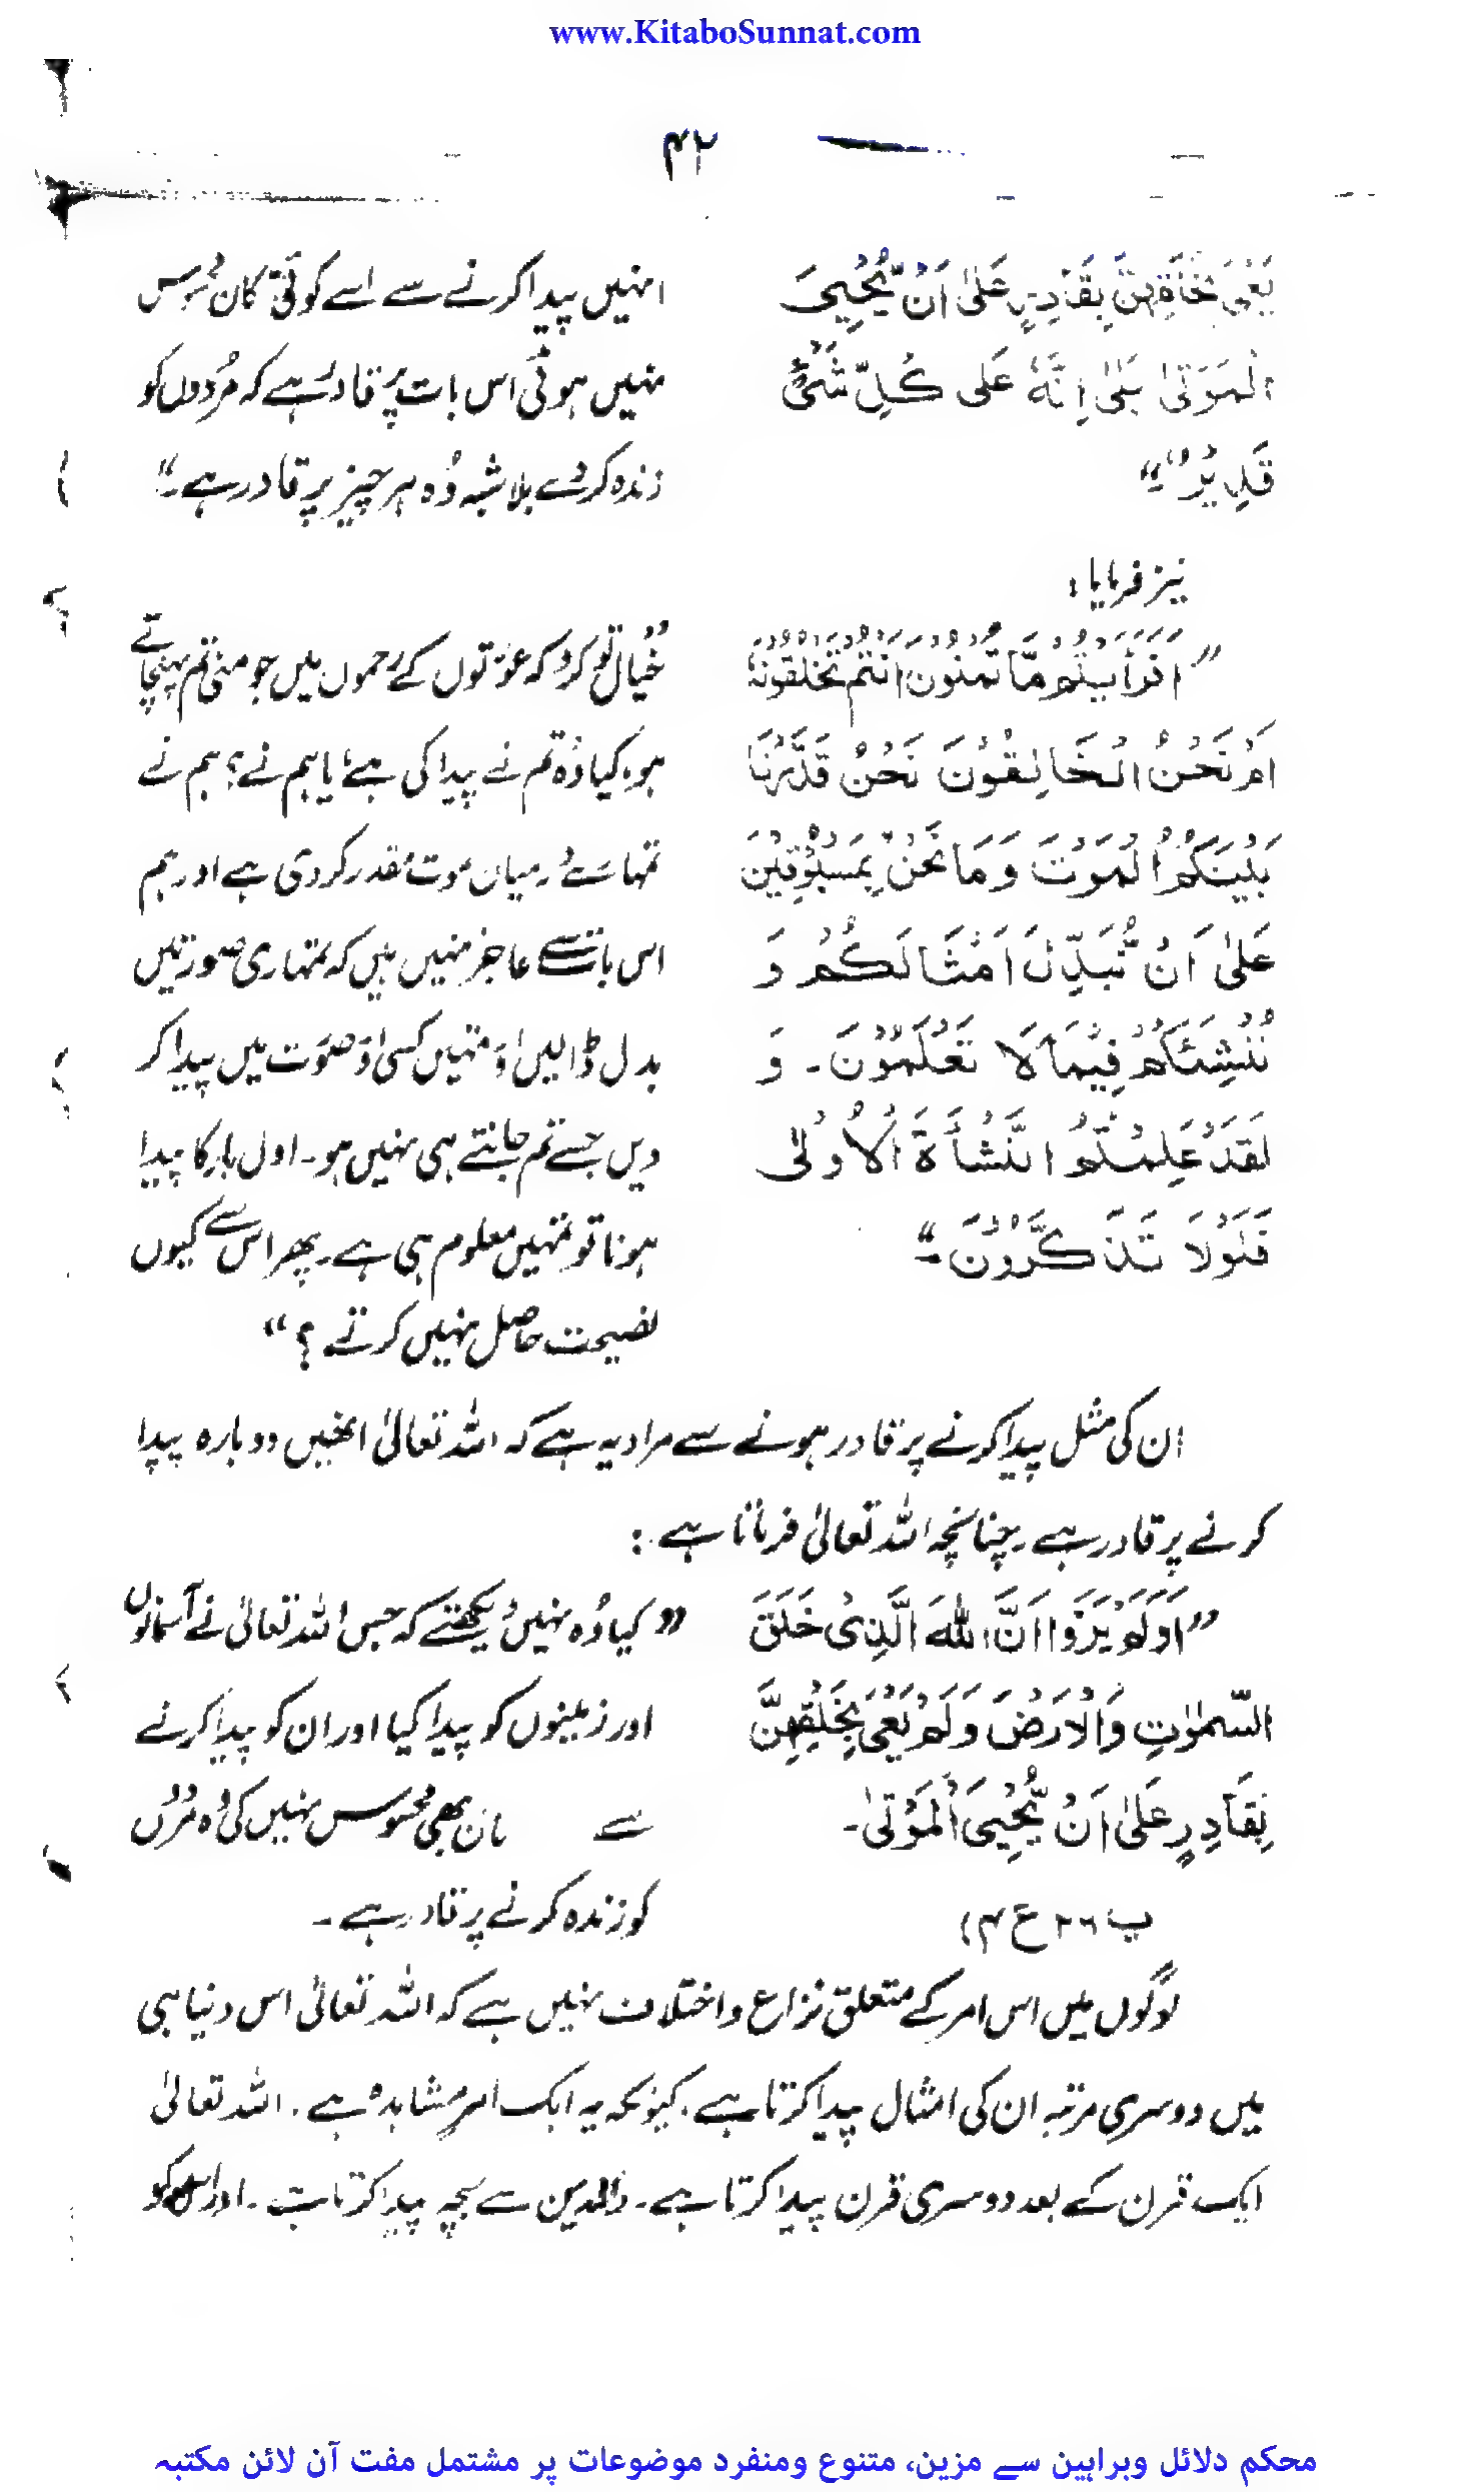 www.KitaboSunnat.com
۴۲
یَعْیَ بِخَلْقِهِنَّ بِقَادِرٍ عَلٰی اَنْ یُّحْیِیَ
الْمَوْتٰی بَلٰی اِنَّهٗ عَلٰی کُلِّ شَیْءٍ
قَدِیْرٌ۔"
انہیں پیدا کرنے سے اسے کوئی تکان محسوس
نہیں ہوئی اس بات پر قادر ہے کہ مُردوں کو
زندہ کر دے بلا شبہ وُہ ہر چیز پر قادر ہے۔"
نیز فرمایا:
"اَفَرَاَیْتُمْ مَّا تُمْنُوْنَ اَنْتُمْ تَخْلُقُوْنَهٗ
اَمْ نَحْنُ الْخَالِقُوْنَ نَحْنُ قَدَّرْنَا
بَیْنَکُمُ الْمَوْتَ وَمَا نَحْنُ بِمَسْبُوْقِیْنَ
عَلٰی اَنْ نُّبَدِّلَ اَمْثَالَکُمْ وَ
نُنْشِئَکُمْ فِیْمَا لَا تَعْلَمُوْنَ۔ وَ
لَقَدْ عَلِمْتُمُ النَّشْأَةَ الْاُوْلٰی
فَلَوْلَا تَذَکَّرُوْنَ۔"
خیال تو کرو کہ عورتوں کے رحموں میں جو منی تم پہنچاتے
ہو، کیا وُہ تم نے پیدا کی ہے یا ہم نے؟ ہم نے
تمہارے درمیان موت مقدر کر دی ہے اور ہم
اس بات سے عاجز نہیں ہیں کہ تمہاری صورتیں
بدل ڈالیں اور تمہیں کسی اور صورت میں پیدا کر
دیں جسے تم جانتے ہی نہیں ہو۔ اول بار کا پیدا
ہونا تو تمہیں معلوم ہی ہے۔ پھر اس سے کیوں
نصیحت حاصل نہیں کرتے؟"
ان کی مثل پیدا کرنے پر قادر ہونے سے مراد یہ ہے کہ اللہ تعالیٰ انھیں دوبارہ پیدا
کرنے پر قادر ہے۔ چنانچہ اللہ تعالیٰ فرماتا ہے:
"اَوَلَمْ یَرَوْا اَنَّ اللهَ الَّذِیْ خَلَقَ
السَّمٰوٰتِ وَالْاَرْضَ وَلَمْ یَعْیَ بِخَلْقِهِنَّ
بِقَادِرٍ عَلٰی اَنْ یُّحْیِیَ الْمَوْتٰی۔
پ ۲۶ ع ۴)
"کیا وُہ نہیں دیکھتے کہ جس اللہ تعالیٰ نے آسمانوں
اور زمینوں کو پیدا کیا اور ان کو پیدا کرنے
سے بھی محسوس نہیں کی وُہ مُردوں
کو زندہ کرنے پر قادر ہے۔
لوگوں میں اس امر کے متعلق نزاع و اختلاف نہیں ہے کہ اللہ تعالیٰ اس دنیا ہی
میں دوسری مرتبہ ان کی امثال پیدا کرتا ہے، کیونکہ یہ ایک امرِ مشاہدہ ہے۔ اللہ تعالیٰ
ایک قرن کے بعد دوسری قرن پیدا کرتا ہے۔ والدین سے بچہ پیدا کرتا ہے۔ اور اس کو
محکم دلائل وبراہین سے مزین، متنوع ومنفرد موضوعات پر مشتمل مفت آن لائن مکتبہ